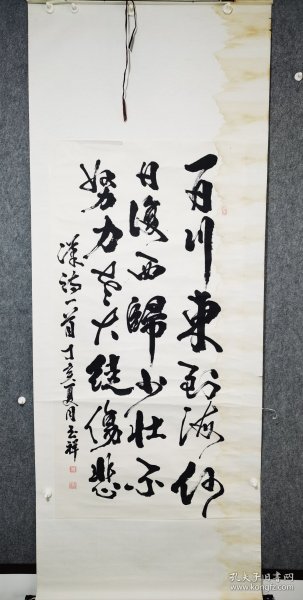 百川東到海何
日復西歸少壯不
努力老大徒傷悲
漢詩一首 丁亥夏月 祥
孔夫子旧书网
www.kongfz.com